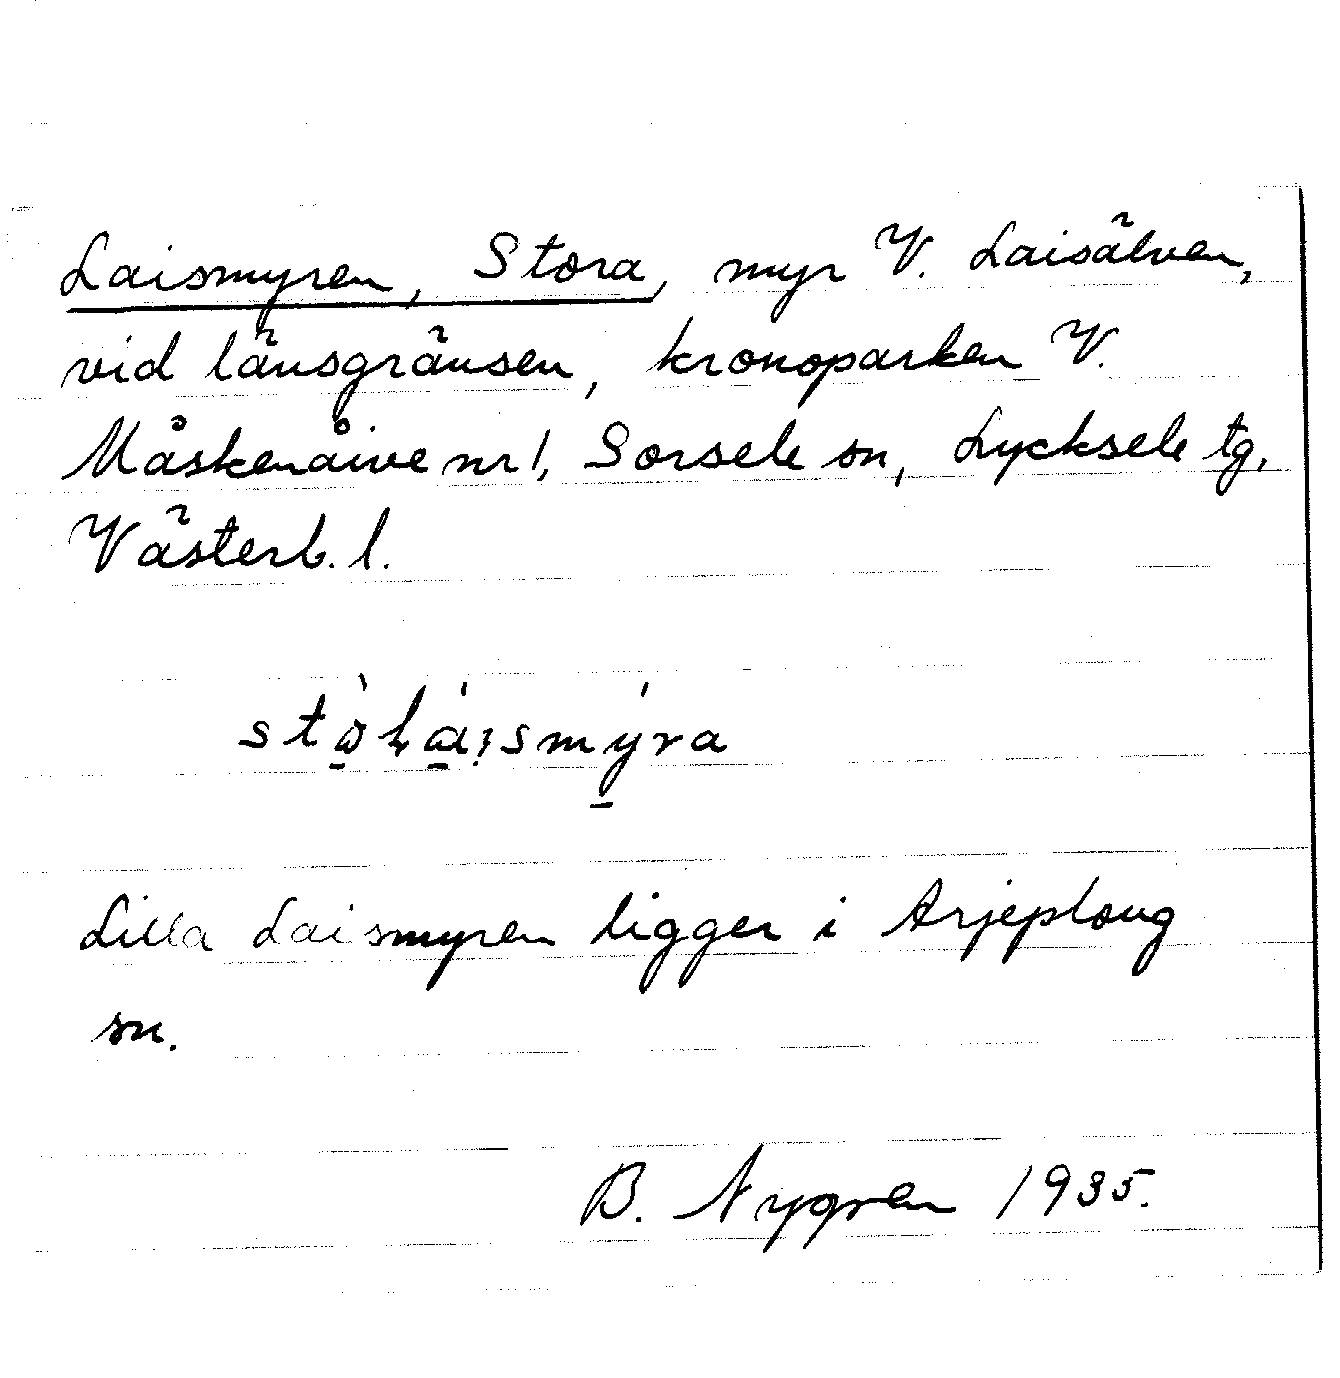 Laismyren, Stora, myr V. Laisälven,
vid länsgränsen, kronoparken V.
Måskenåive nr 1, Sorsele sn, Lycksele tg,
Västerb. l.
Lilla Laismyren ligger i Arjeploug
sn.
B. Nygren 1935.